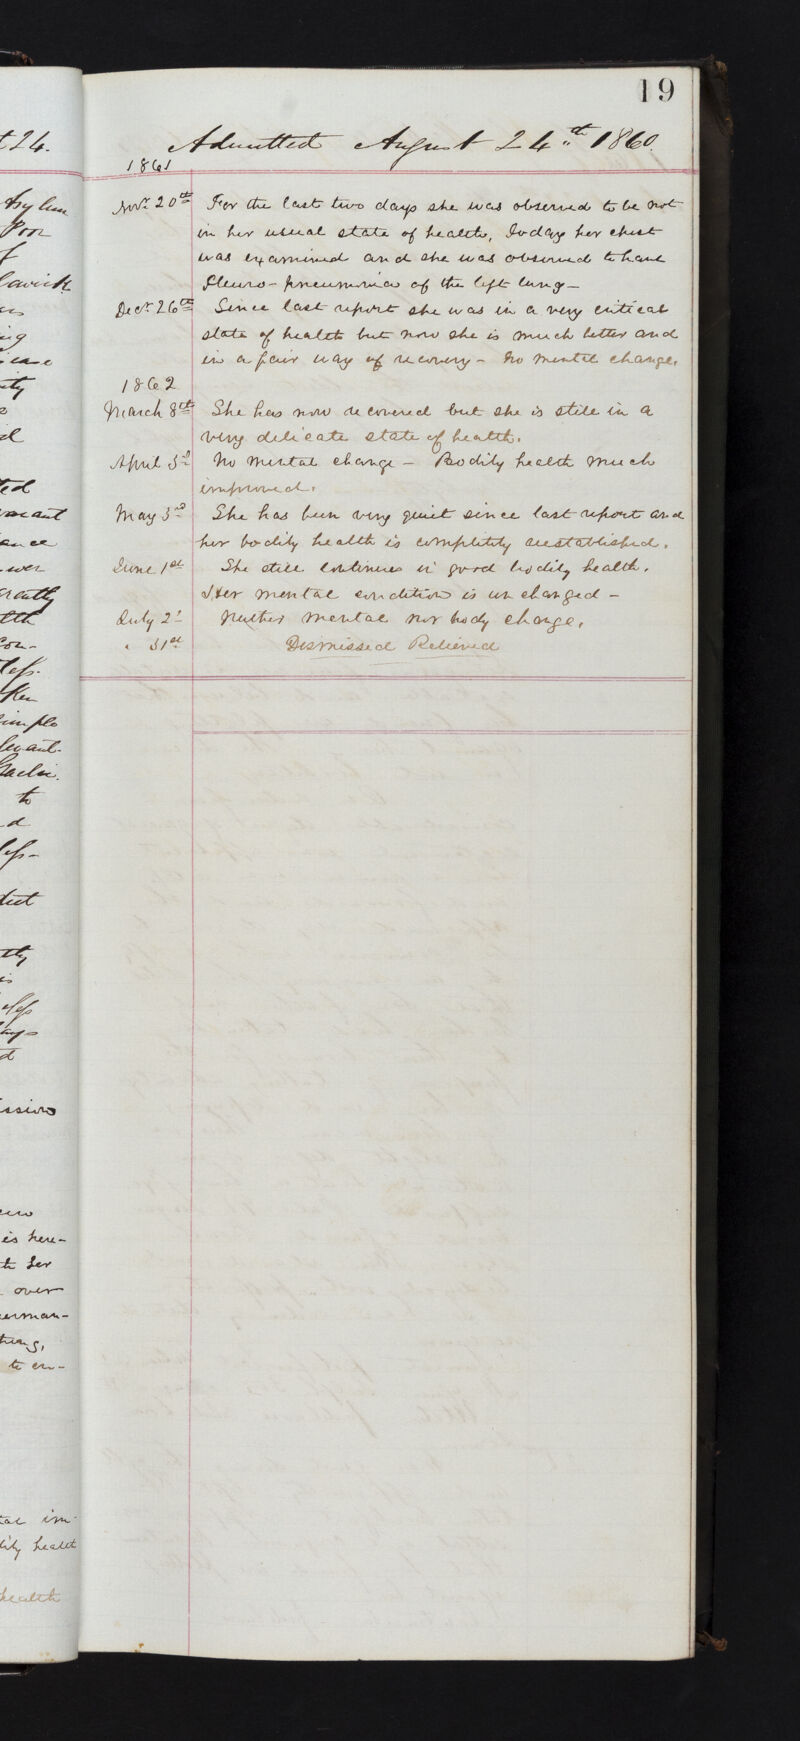 19
Admitted August 24th 1860.
1861
Novr. 20th For the last two days she was observed to be not
in her usual state of health, Today her chest
was examined and she was observed to have
Pleuro-pneumonia of the left lung -
Decr. 26th Since last report she was in a very critical
state of health but now she is much better and
in a fair way of recovery - No mental change.
1862
March 8th She has now recovered but she is still in a
very delicate state of health.
April 3d No mental change - Bodily health much
improved.
May 3rd She has been very quiet since last report and
her bodily health is completely reestablished.
June 1st She still continues in good bodily health.
Her mental condition is unchanged -
July 2d Neither mental nor body change.
" 31st Dismissed Relieved
t 24.
Asylum
Poor
f
ing
ity
ted
ance
eratly
lth
con-
less.
simple
to
d
less-
is
days
d
ission
is here-
her
over
erman-
thing,
to en-
tal im-
dily health
health